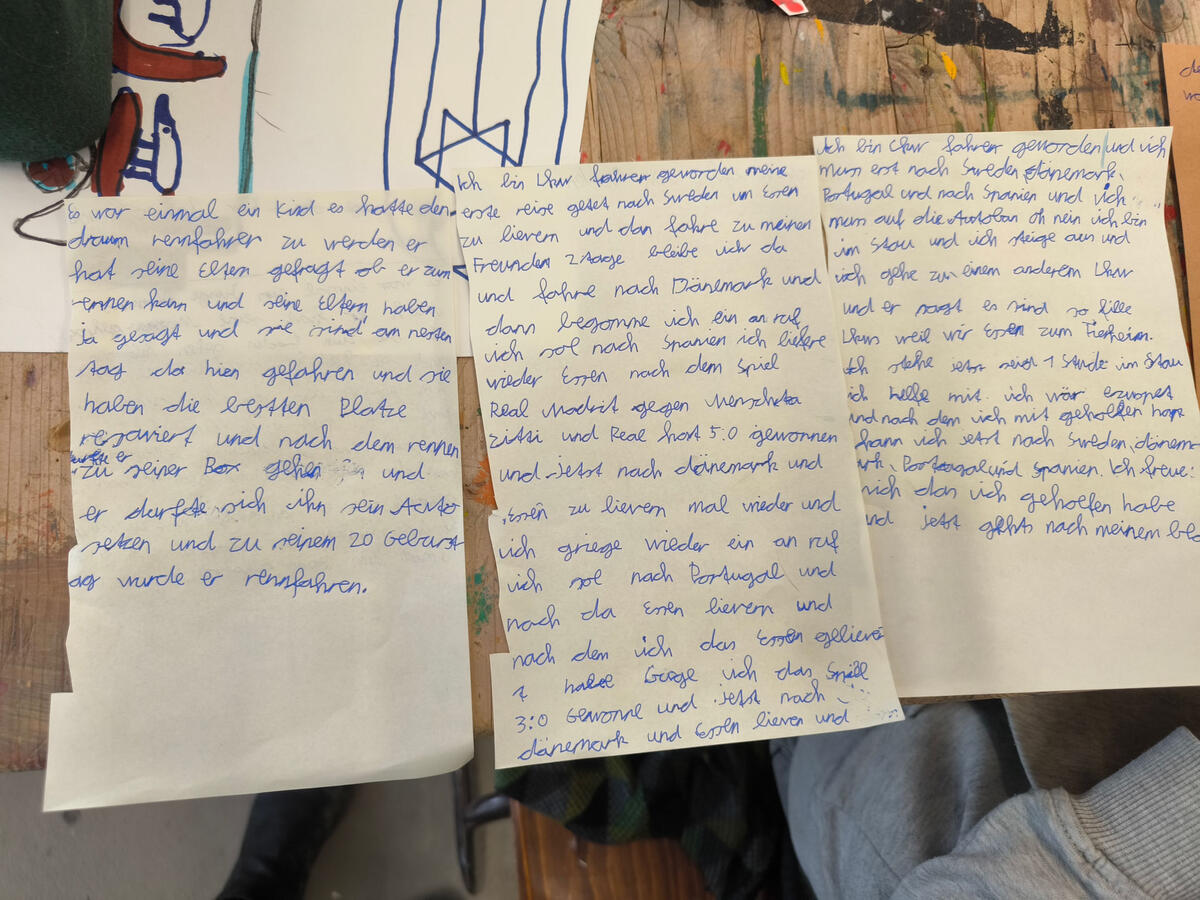 Es war einmal ein Kind es hatte den
draum rennfahrer zu werden er
hat seine Eltern gefragt ob er zum
rennen kann und seine Eltern haben
ja gesagt und sie sind am nesten
tag da hien gefahren und sie
haben die bestten Platze
reserviert und nach dem rennen
durfte er
zu seiner Box gehen und
er durfte sich ihn sein Auto
setzen und zu seinem 20 Geburst
ag wurde er rennfahren.
Ich bin Lkw fahrer geworden meine
erste reise getet nach Sweden um Essen
zu lievern und dan fahre zu meinen
Freunden 2 tage bleibe ich da
und fahre nach Dänemark und
dann begomme ich ein an ruf
ich sol nach Spanien ich liefere
wieder Essen nach dem Spiel
Real Madrit gegen Menscheta
Zitti und Real hat 5:0 gewonnen
und jetzt nach dänemark und
Essen zu lievern mal wieder und
ich griege wieder ein an ruf
ich sol nach Portugal und
nach da Essen lievern und
nach dem ich das Essen geliever
t habe ich das Spiel
3:0 Gewonne und jetzt nach
dänemark und Essen lieven und
Ich bin Lkw fahrer geworden und ich
mus erst nach Sweden dänemark,
Portugal und nach Spanien und ich
mus auf die Autoban oh nein ich bin
im Stau und ich steige aus und
ich gehe zu einem anderem Lkw
und er sagt es sind so fille
Lkws weil wir Essen zum Tierheim.
Ich stehe jetzt seid 1 Stunde im Stau
ich helfe mit. ich wär
und nach dem ich mit geholfen habe
kann ich jetzt nach Sweden, dänem
ark, Portugal und Spanien. Ich freue
mich das ich geholfen habe
und jetzt gehts nach meinem